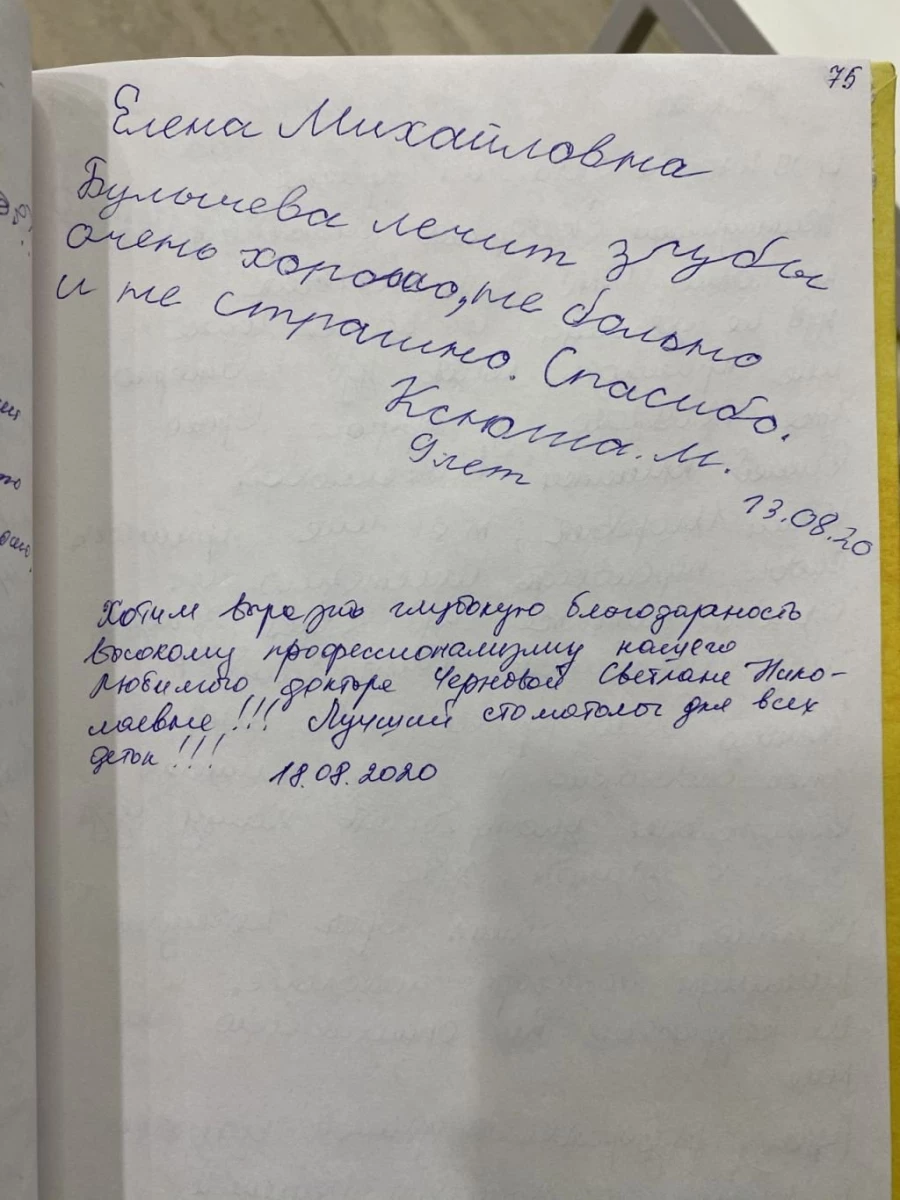 75
Елена Михайловна
Булычева лечит зубы
очень хорошо, не больно
и не страшно. Спасибо.
Ксюша. М.
9 лет
13.08.20
Хотим выразить глубокую благодарность
высокому профессионализму нашего
любимого доктора Черновой Светлане Нико-
лаевне!!! Лучший стоматолог для всех
деток!!!
18.08.2020